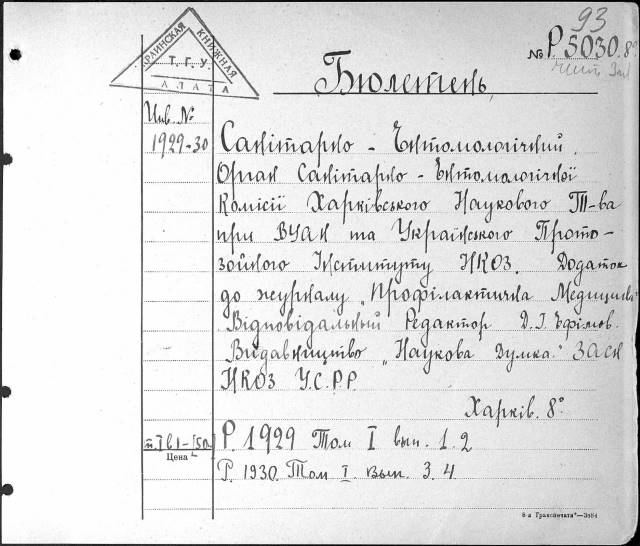 93
№ Р. 5030. 8º
КРАИНСКАЯ КНИЖНАЯ
Т. Г. У.
АЛАТА
Бюлетень
Инв. №
1929-30
Санітарно - Ентомологічний.
Орган Санітарно - Ентомологічної
Комісії Харківського Наукового Т-ва
при ВУАН та Українського Прото-
зойного Інституту НКОЗ. Додаток
до журналу „Профілактична Медицина"
Відповідальний Редактор Д. І. Ефімов.
Видавництво „Наукова Думка." ЗАСН
НКОЗ У.С.Р.Р.
Харків. 8º
Р. 1929 Том I вып. 1. 2
Цена
Р. 1930. Том I. вып. 3. 4
8-я Транспечати"—3584